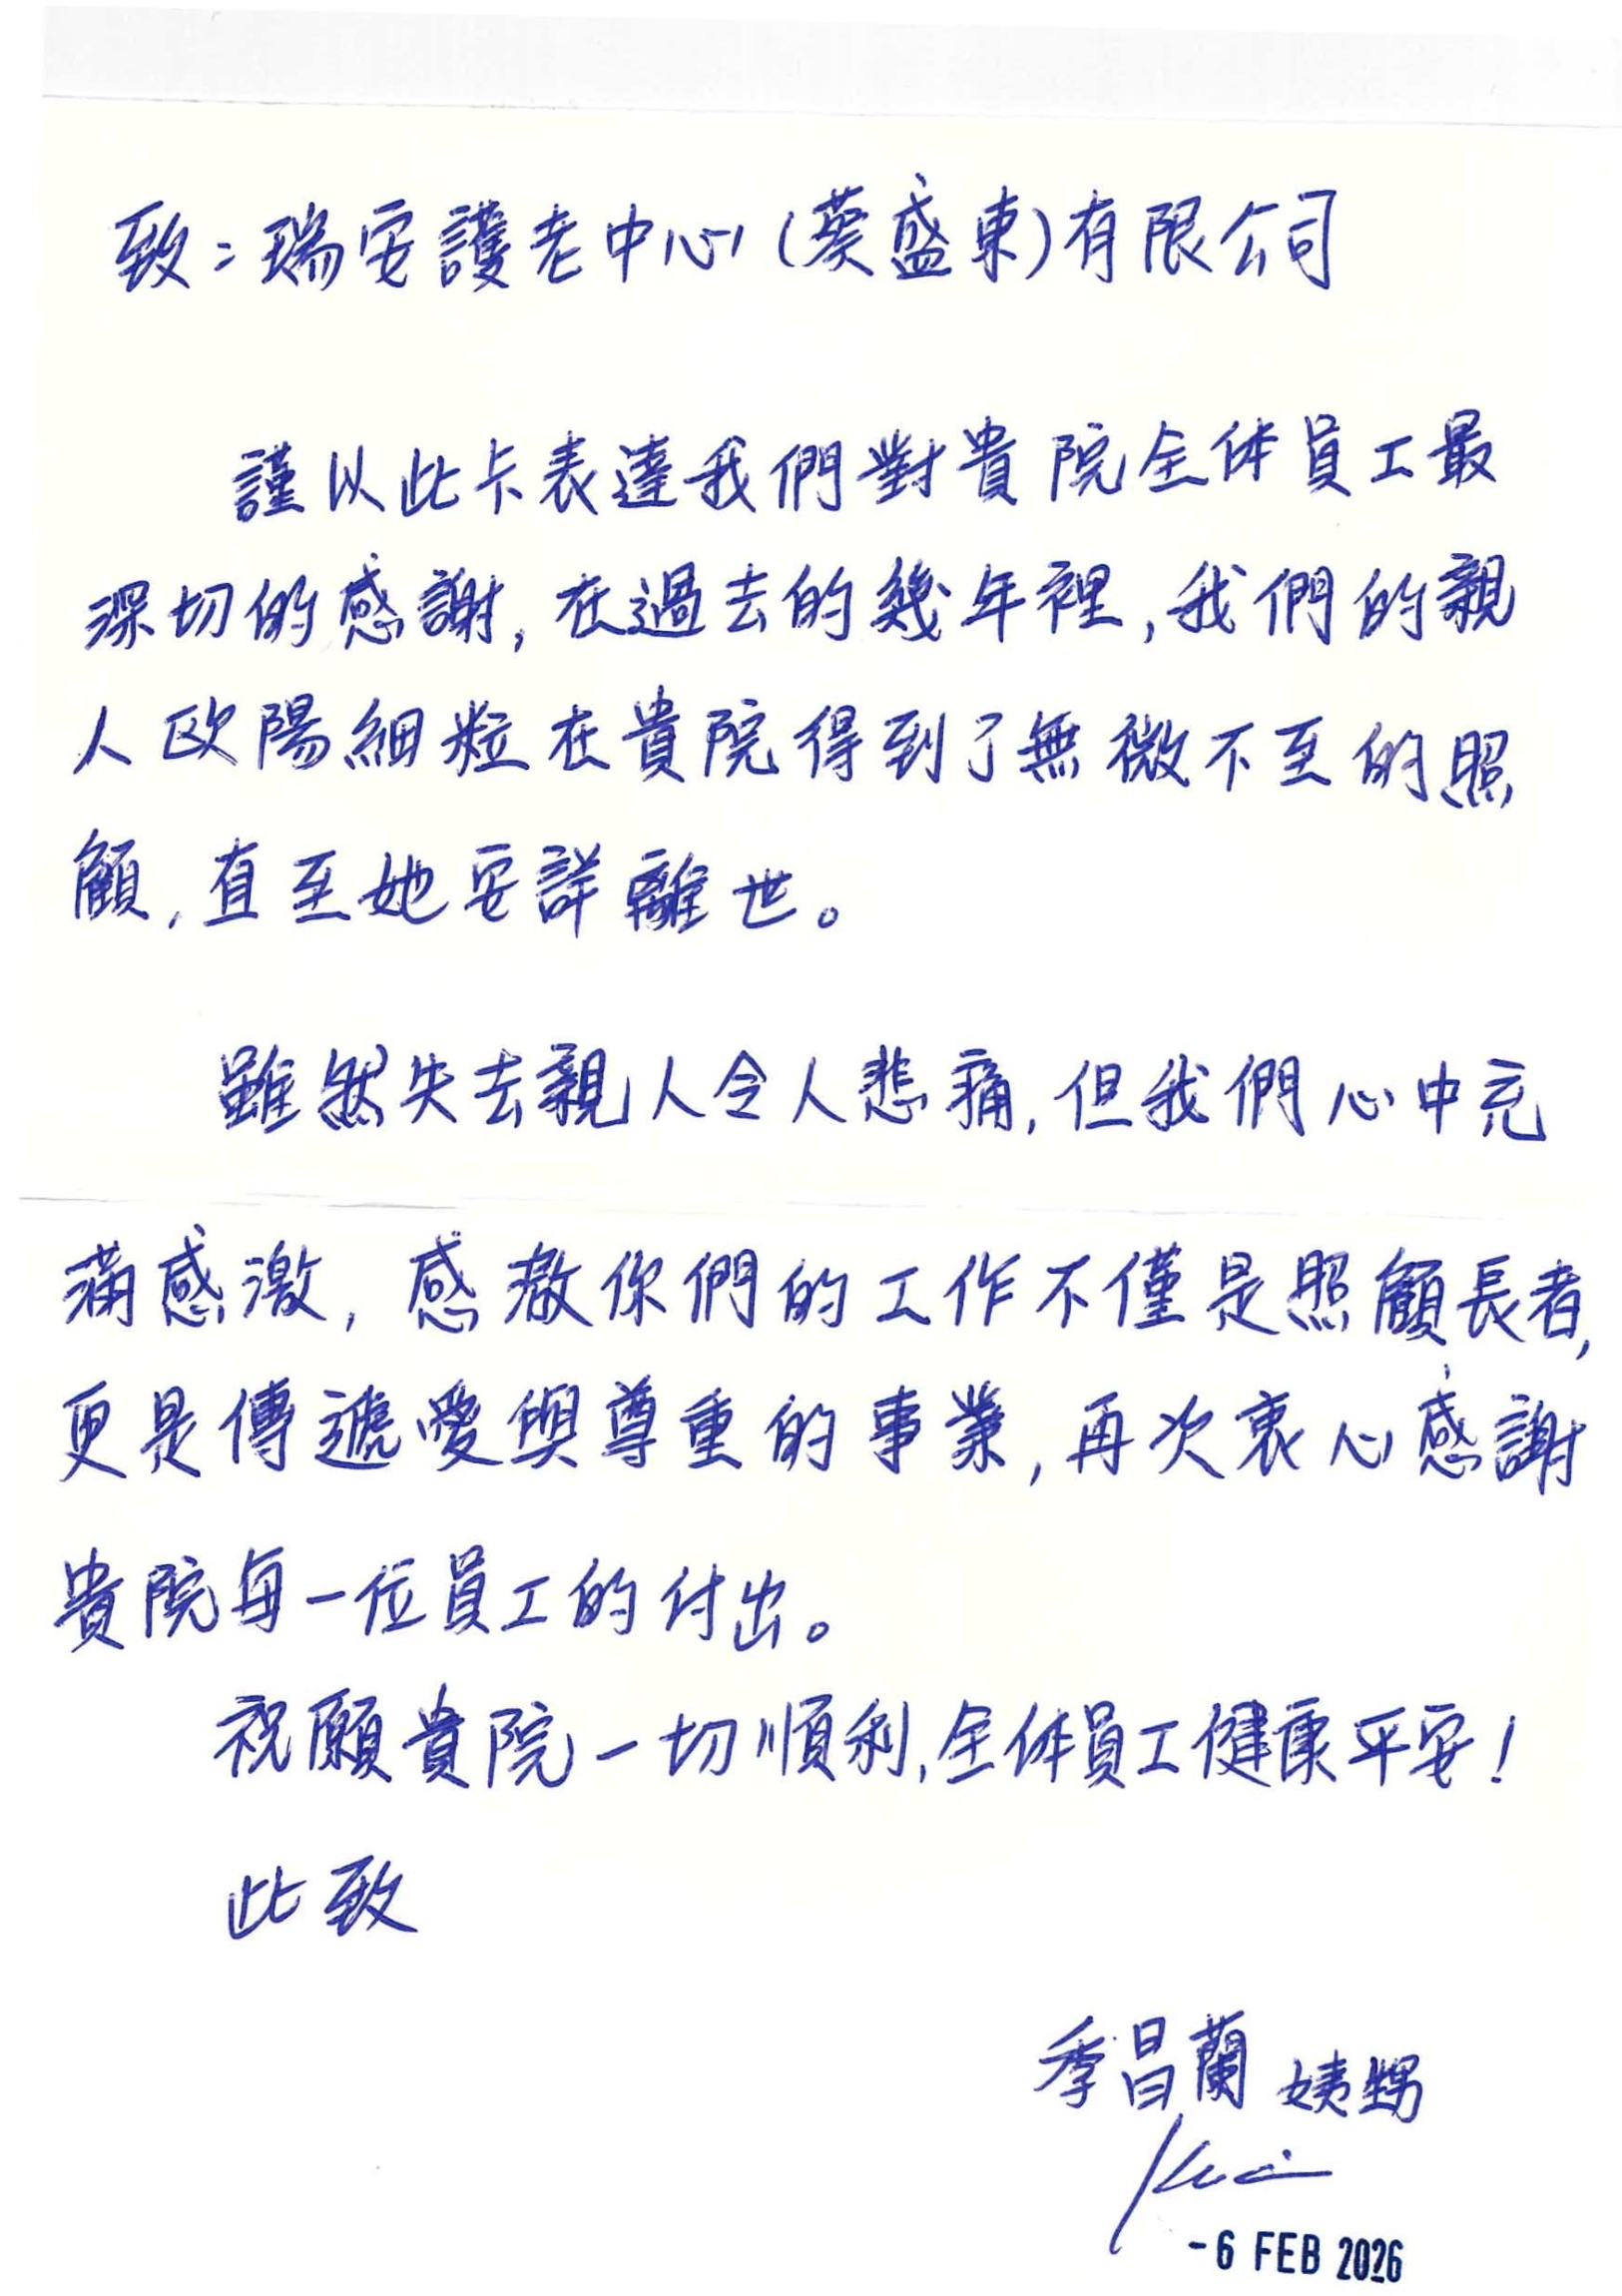 致：瑞安護老中心(葵盛東)有限公司
謹以此卡表達我們對貴院全体員工最
深切的感謝,在過去的幾年裡,我們的親
人歐陽細粒在貴院得到了無微不至的照
顧,直至她安詳離世。
雖然失去親人令人悲痛,但我們心中充
滿感激,感激你們的工作不僅是照顧長者,
更是傳遞愛與尊重的事業,再次衷心感謝
貴院每一位員工的付出。
祝願貴院一切順利,全体員工健康平安!
此致
季昌蘭 姨甥
-6 FEB 2026